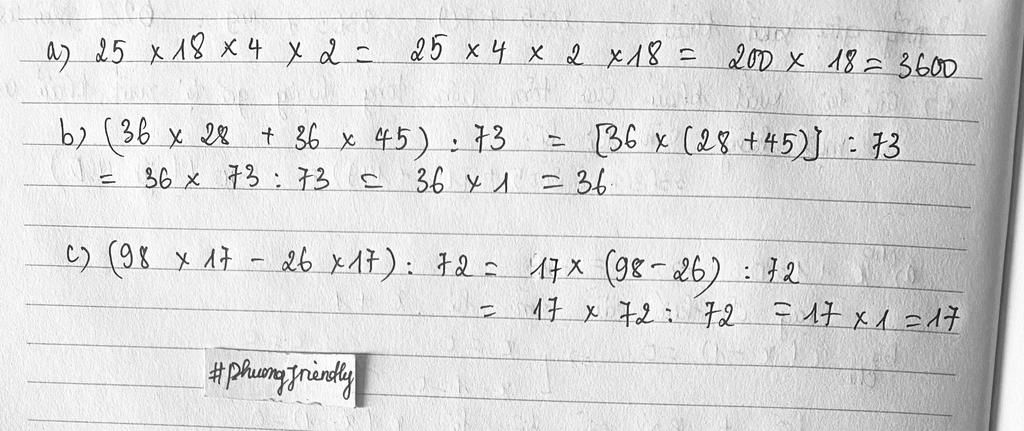 a) 25 × 18 × 4 × 2 = 25 × 4 × 2 × 18 = 200 × 18 = 3600
b) (36 × 28 + 36 × 45) : 73 = [36 × (28 + 45)] : 73
= 36 × 73 : 73 = 36 × 1 = 36
c) (98 × 17 - 26 × 17) : 72 = 17 × (98 - 26) : 72
= 17 × 72 : 72 = 17 × 1 = 17
#phuongfriendly